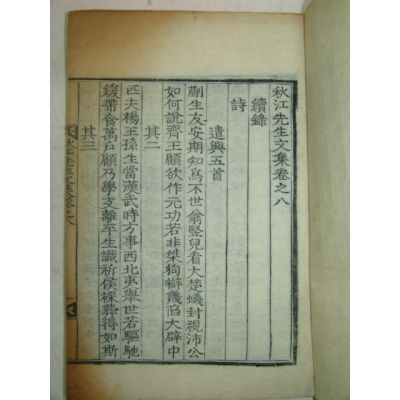 秋江先生文集卷之八
續錄
詩
遣興五首
蒯生友安期知爲不世翁豎兒看大楚蟻封視沛公
如何說齊王顧欲作元功若非桀狗辯幾陷大辟中
其二
匹夫楊王孫生當漢武時方事西北夷舉世若驅馳
緩帶食萬戶顧乃學支離平生識祈侯裸葬得如斯
其三